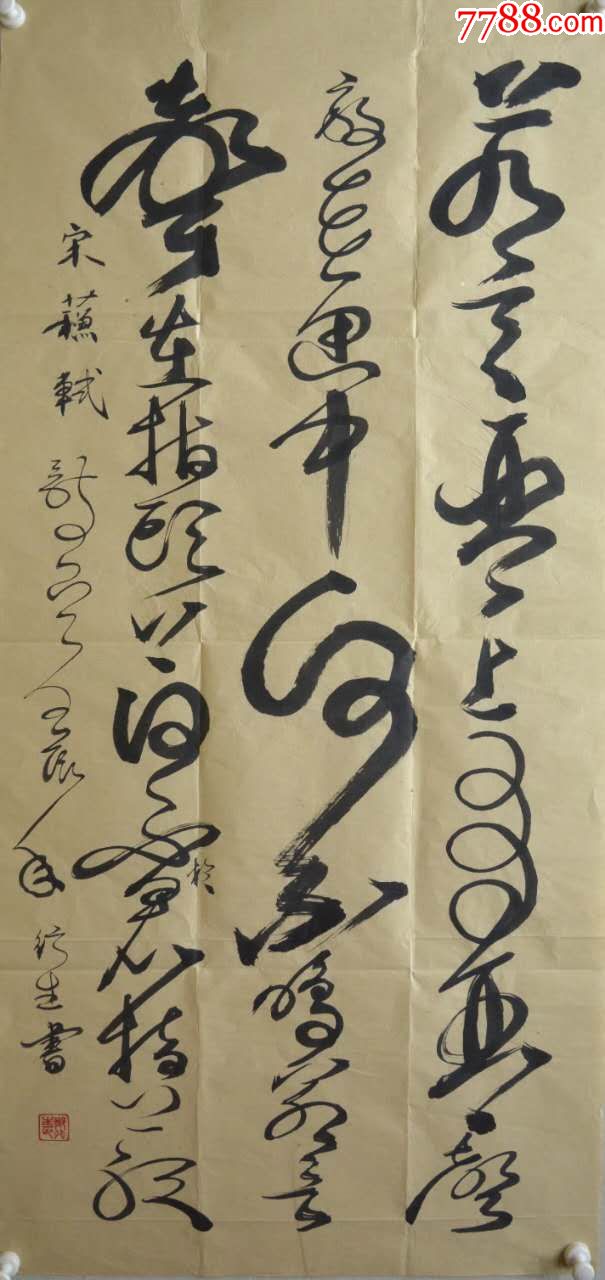 7788.com
若言琴上有琴聲
放在匣中何不鳴若言
聲在指頭上何不於君指上聽
宋蘇軾詩 年 生書